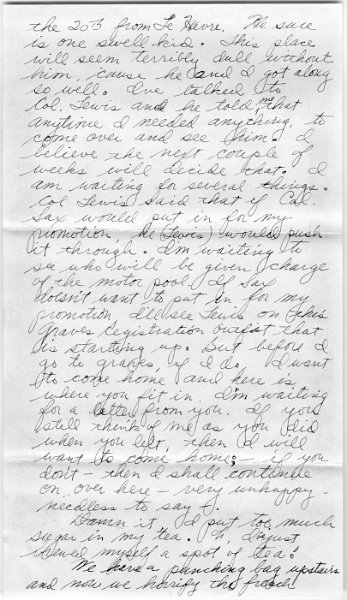 the 20th from Le Havre. He sure
is one swell kid. This place
will seem terribly dull without
him, 'cause he and I got along
so well. I've talked to
Col. Lewis and he told me that
anytime I needed anything, to
come over and see him. I
believe the next couple of
weeks will decide that. I
am waiting for several things.
Col Lewis said that if Col.
Sax would put in for my
promotion, he (Lewis) would push
it through. I'm waiting to
see who will be given charge
of the motor pool. If Sax
doesn't want to put in for my
promotion, I'll see Lewis on this
Graves Registration outfit that
is starting up. But before I
go to graves, if I do I want
to come home and here is
where you fit in. I'm waiting
for a letter from you. If you
still think of me as you did
when you left, then I will
want to come home; - if you
don't - then I shall continue
on over here - very unhappy -
needless to say.
Damn it I put too much
sugar in my tea. Oh, I just
brewed myself a spot of tea!
We have a punching bag upstairs
and now we horrify the french